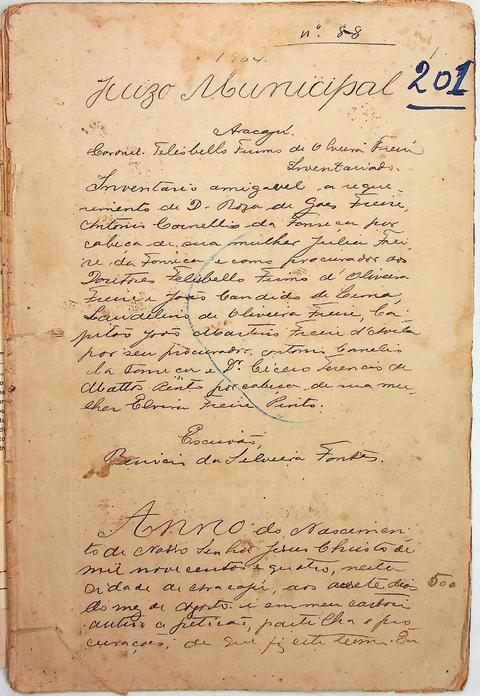 nº 88
1904.
Juizo Municipal 201
Aracajú.
Coronel Telisbello Firmo de Oliveira Freire
Inventariado.
Inventario amigavel a reque
rimento de D. Roza de Goes Freire,
Antonio Cornellio da Fonseca por
cabeça de sua mulher Julia Frei
re da Fonseca e como procurador dos
Doutores Felisbello Firmo d'Oliveira
Freire e João Candido de
Laudelino de Oliveira Freire, Ca
pitão João Martins Freire d'Avila
por seu procurador Antonio Cornelio
da Fonseca e Dr. Cicero
de
Mattos Pinto por cabeça de sua mu
lher Elvira Freire Pinto.
Escrivão,
da Silveira Fontes.
Anno do Nascimen
to de Nosso Senhor Jesus Christo de
mil nove centos e quatro, nesta
cidade de Aracajú, aos sete dias 500
do mez de Agosto e em meu cartorio
autuo a petição, partilha e pro
curações, de que fiz este termo. Eu